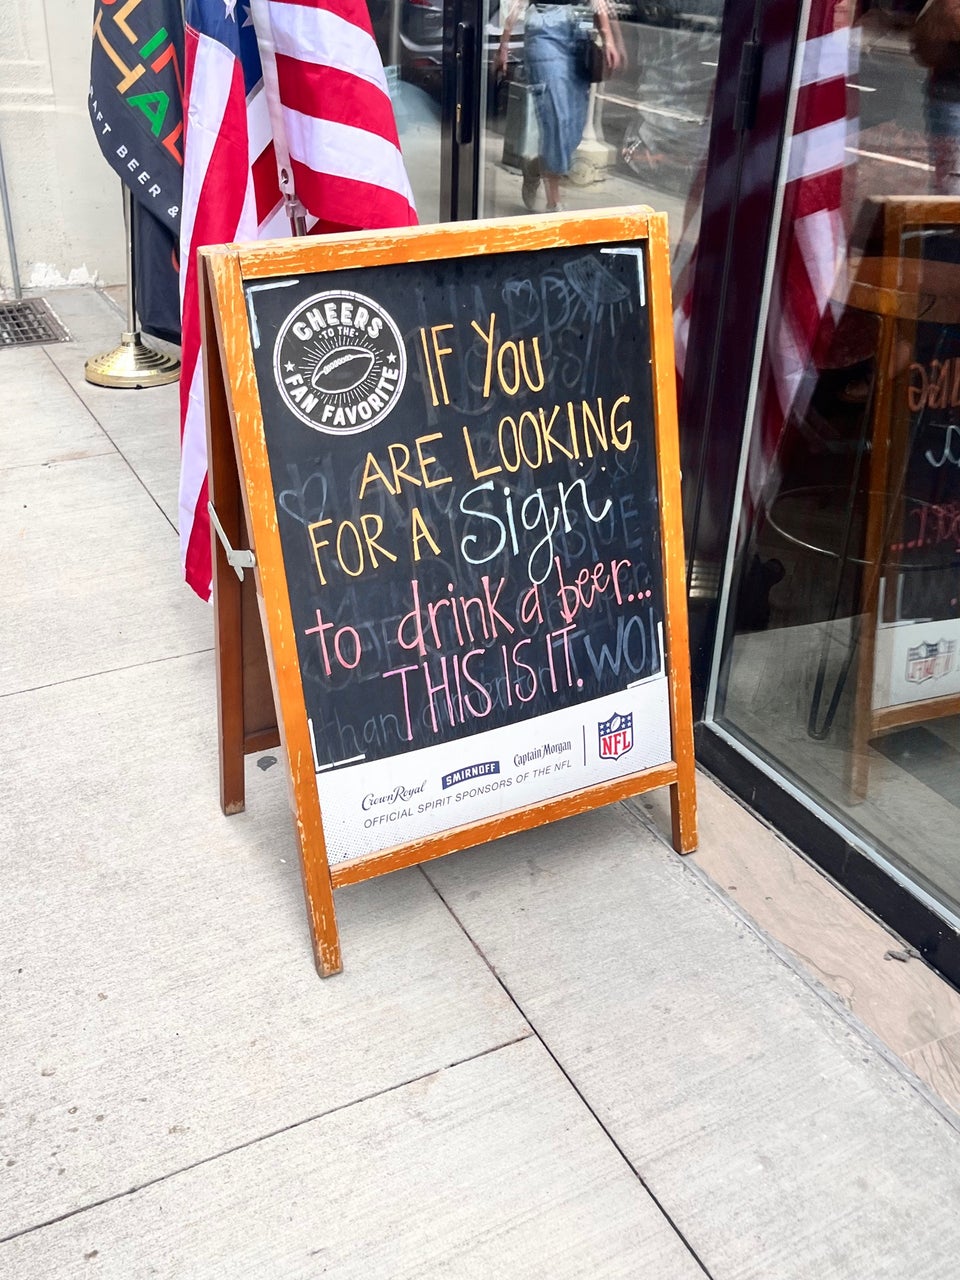 CRAFT BEER &
CHEERS
TO THE
FAN FAVORITE
IF YOU
ARE LOOKING
FOR A Sign
to drink a beer...
THIS IS IT.
TWO!
than
Crown Royal
SMIRNOFF
Captain Morgan
NFL
OFFICIAL SPIRIT SPONSORS OF THE NFL